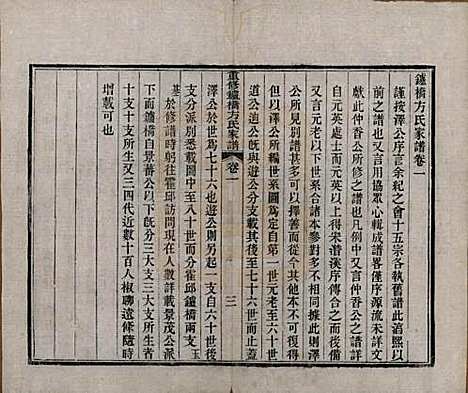 鑪橋方氏家譜卷一
謹按澤公序言余紀之會十五宗各執舊譜此㴞熙以
前之譜也又言用協眾心輯成譜畧僅序源流而未備
獻此仲香公所修之譜也凡例中又言仲香公之譜
自元英處士而元英以上得宋濳溪序傳合之而後備
又言元老以下世系合譜本參對多不相同據此則澤
公所見別有諸譜多可以擇善而從合成其爲家譜也
但以澤公所編世系圖爲定自第一世元老至六十世
道公迨攽與遊公分支其後至七十六世而止蓋
重修鑪橋方氏家譜
卷一
三
澤公於世爲七十六世遊公則另起一支自六十世
支分派別至七十六世現在霍邱鑪橋兩支玉
基於修譜時躬往霍邱訪問現在人數詳載景茂公派
下而鑪橋自景蕃公以下攽分三大支三大支所生者
十支十支所生又三四代近數十百人椒聊遠條隨時
增載可也